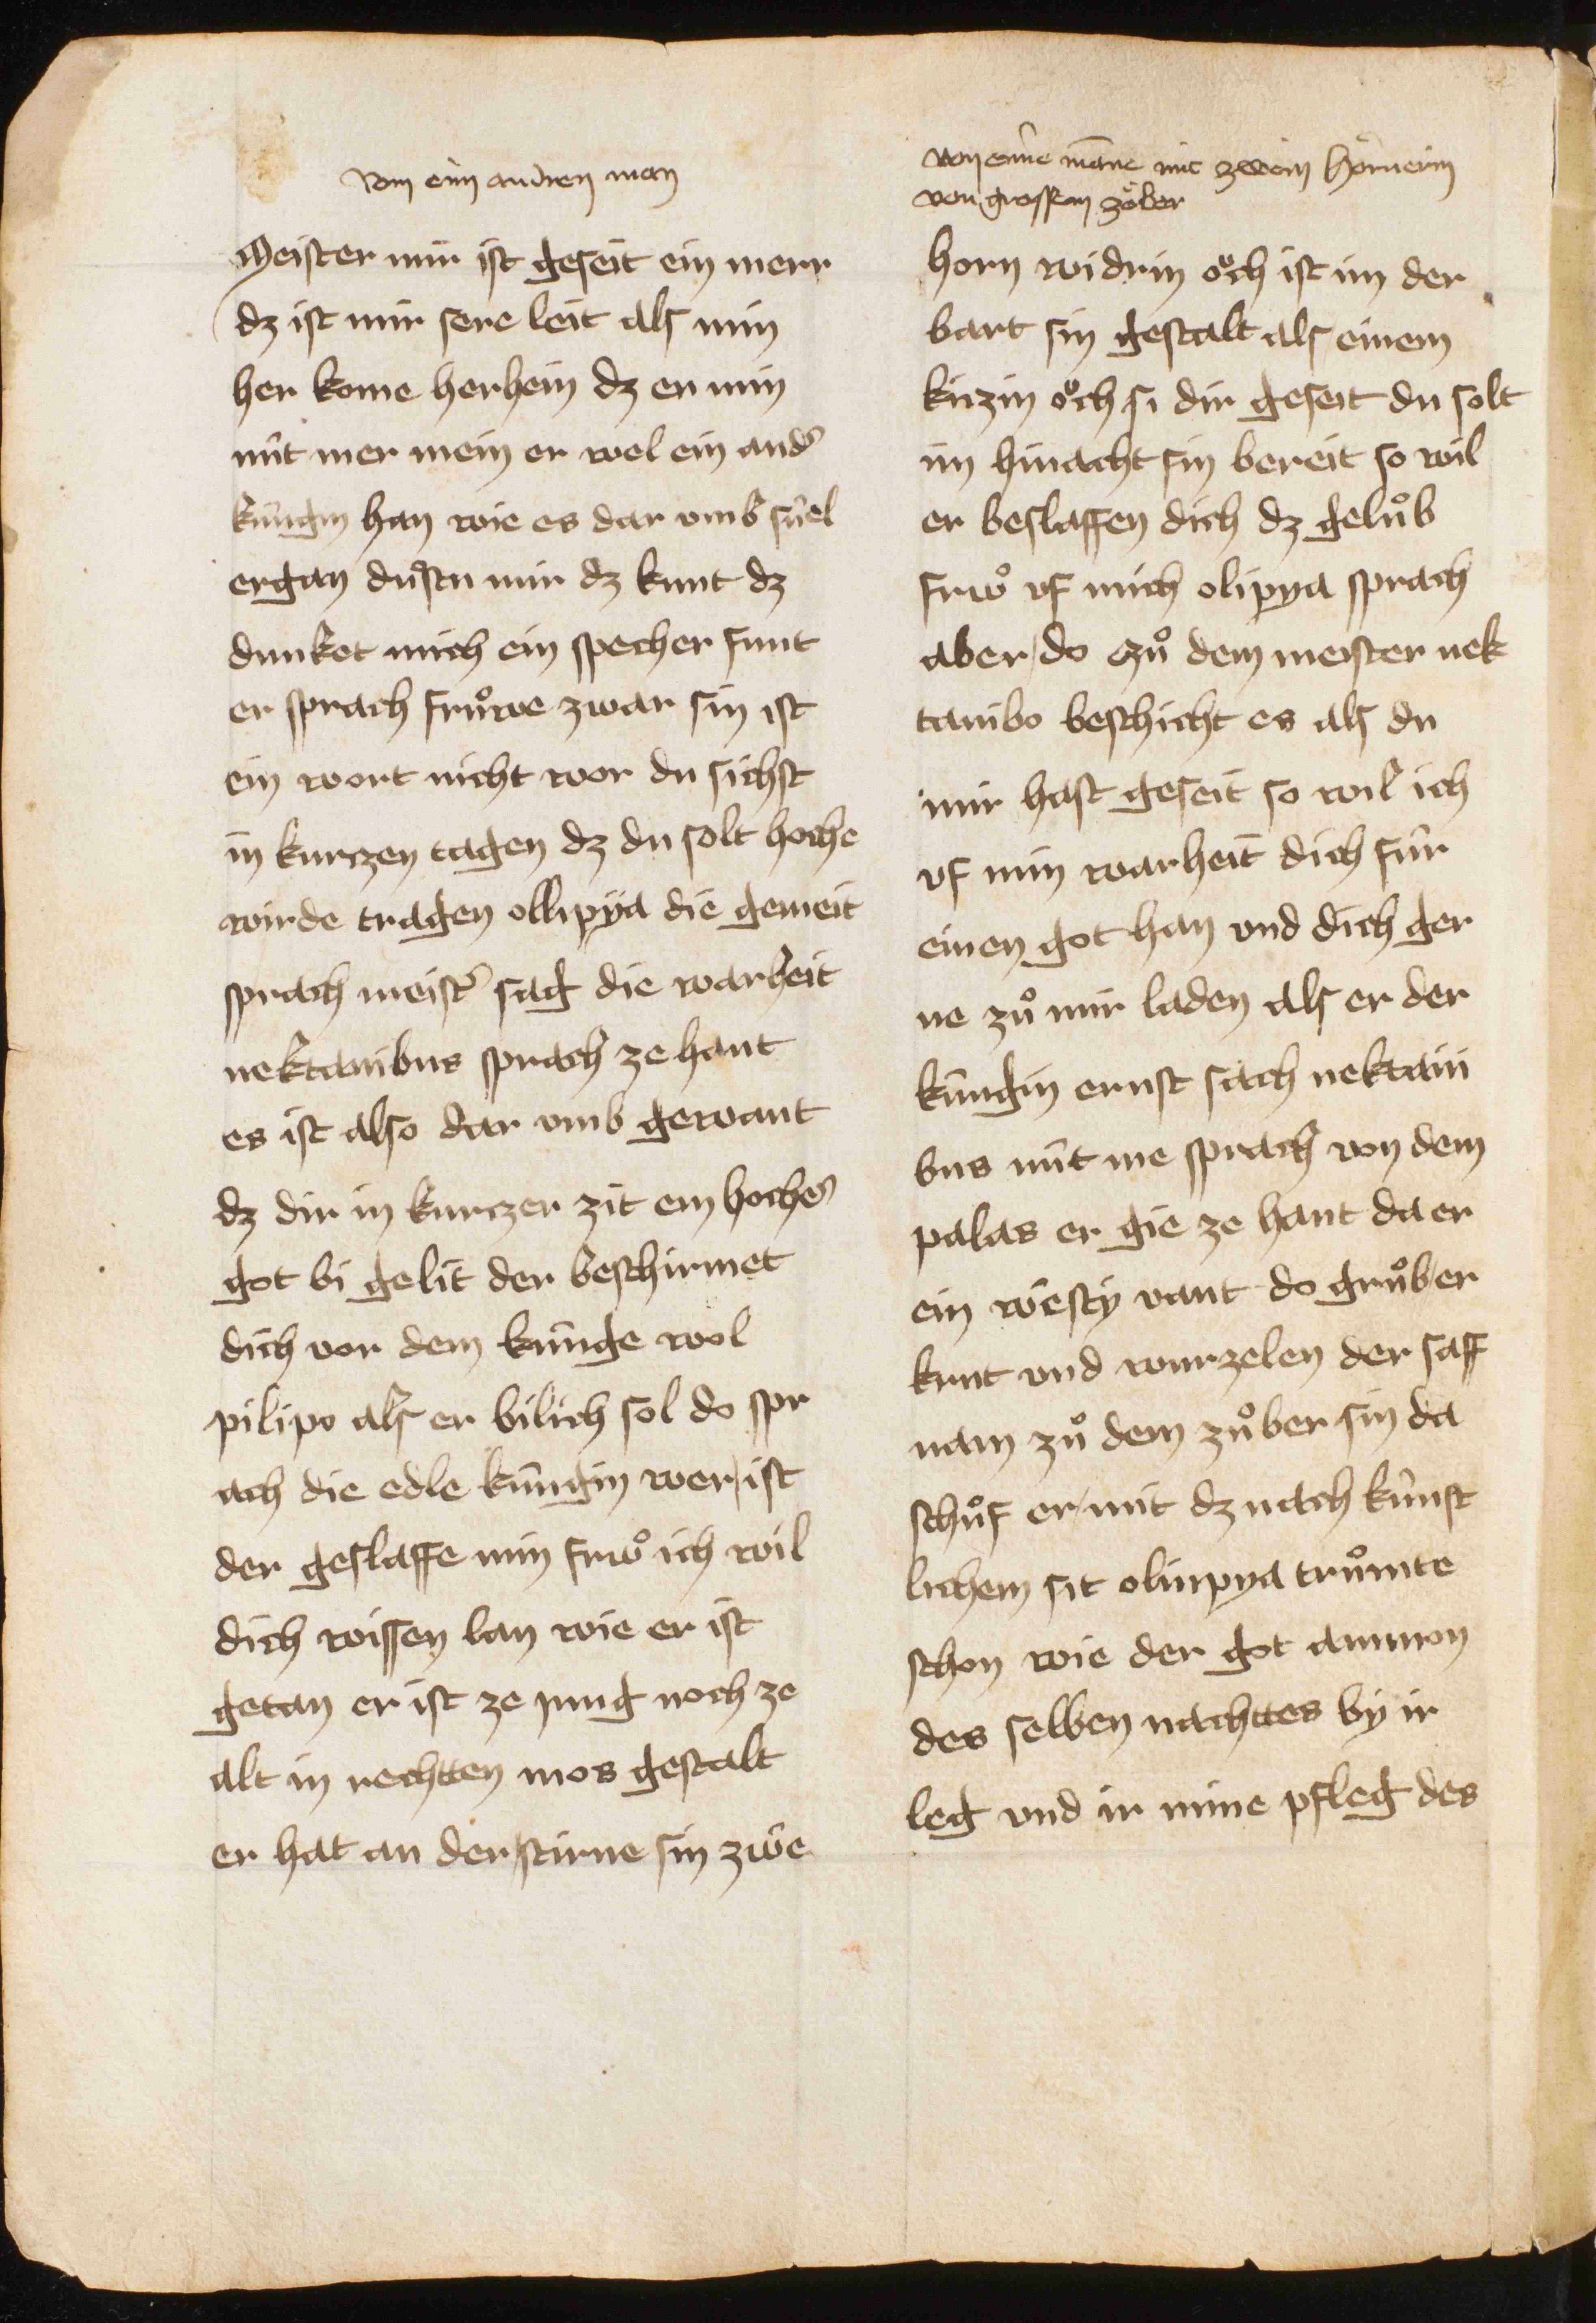 von eim andren man
Meister mir ist geseit ein merr
dz ist mir sere leit als min
her kome herhein dz er min
nût mer mein er wel ein and͛
kûngin han wie es dar vmb sûel
ergan duͦstu mir dz kunt dz
dunket mich ein specher funt
er sprach fruͦwe zwar sin ist
ein wort nicht wor du sichst
in kurczen tagen dz du solt hoche
wirde tragen ollipÿa die gemeit
sprach meist͛ sag die warheit
nektanibus sprach ze hant
es ist also dar vmb gewant
dz dir in kurczer zit ein hoches
got bi gelit der beschirmet
dich vor dem kûnge wol
pilipo als er bilich sol do spr
ach die edle kûngin wer ist
der geslaffe min frwͦ ich wil
dich wissen lan wie er ist
getan er ist ze jung noch ze
alt in rechtten mos gestalt
er hat an der stirne sin zwe
von eime mane mit zwein hörnerin
von grossem zöber
horn widrin oͧch ist im der
bart sin gestalt als einem
kizin oͧch si dir geseit du solt
im hinacht sin bereit so wil
er beslaffen dich dz geluͦb
frwͦ vf mich olipya sprach
aber do zuͦ dem meister nek
tanibo beschicht es als du
mir hast geseit so wil ich
vf min warheit dich fûr
einen got han vnd dich ger
ne zuͦ mir laden als er der
kûngin ernst sach nektani
bus nût me sprach von dem
palas er gie ze hant da er
ein wêsty vant do gruͦb er
krut vnd wurzelen der saff
nam zuͦ dem zuͦber sin da
schuͦf er mit dz nach kûnst
lichem sit olimpya truͦmte
schon wie der got ammon
des selben nachttes by ir
leg vnd ir mine pfleg des